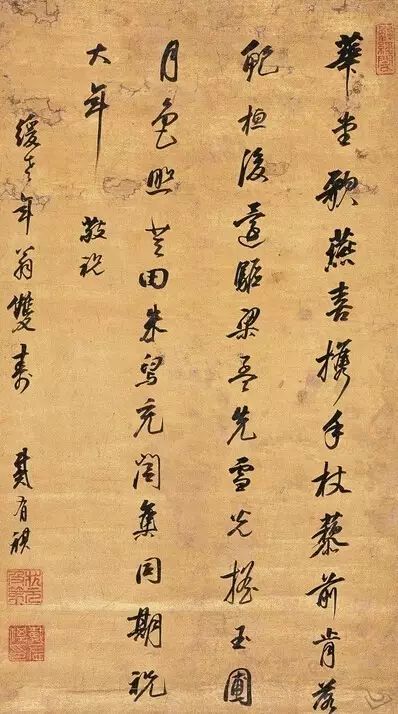 華堂歌燕喜攜手杖藜前肯落
鮑桓後還驅梁孟先雪光搖玉圃
月色照芝田朱舄充閭集同期祝
大年 敬祝
緩老年翁雙壽 戴有祺